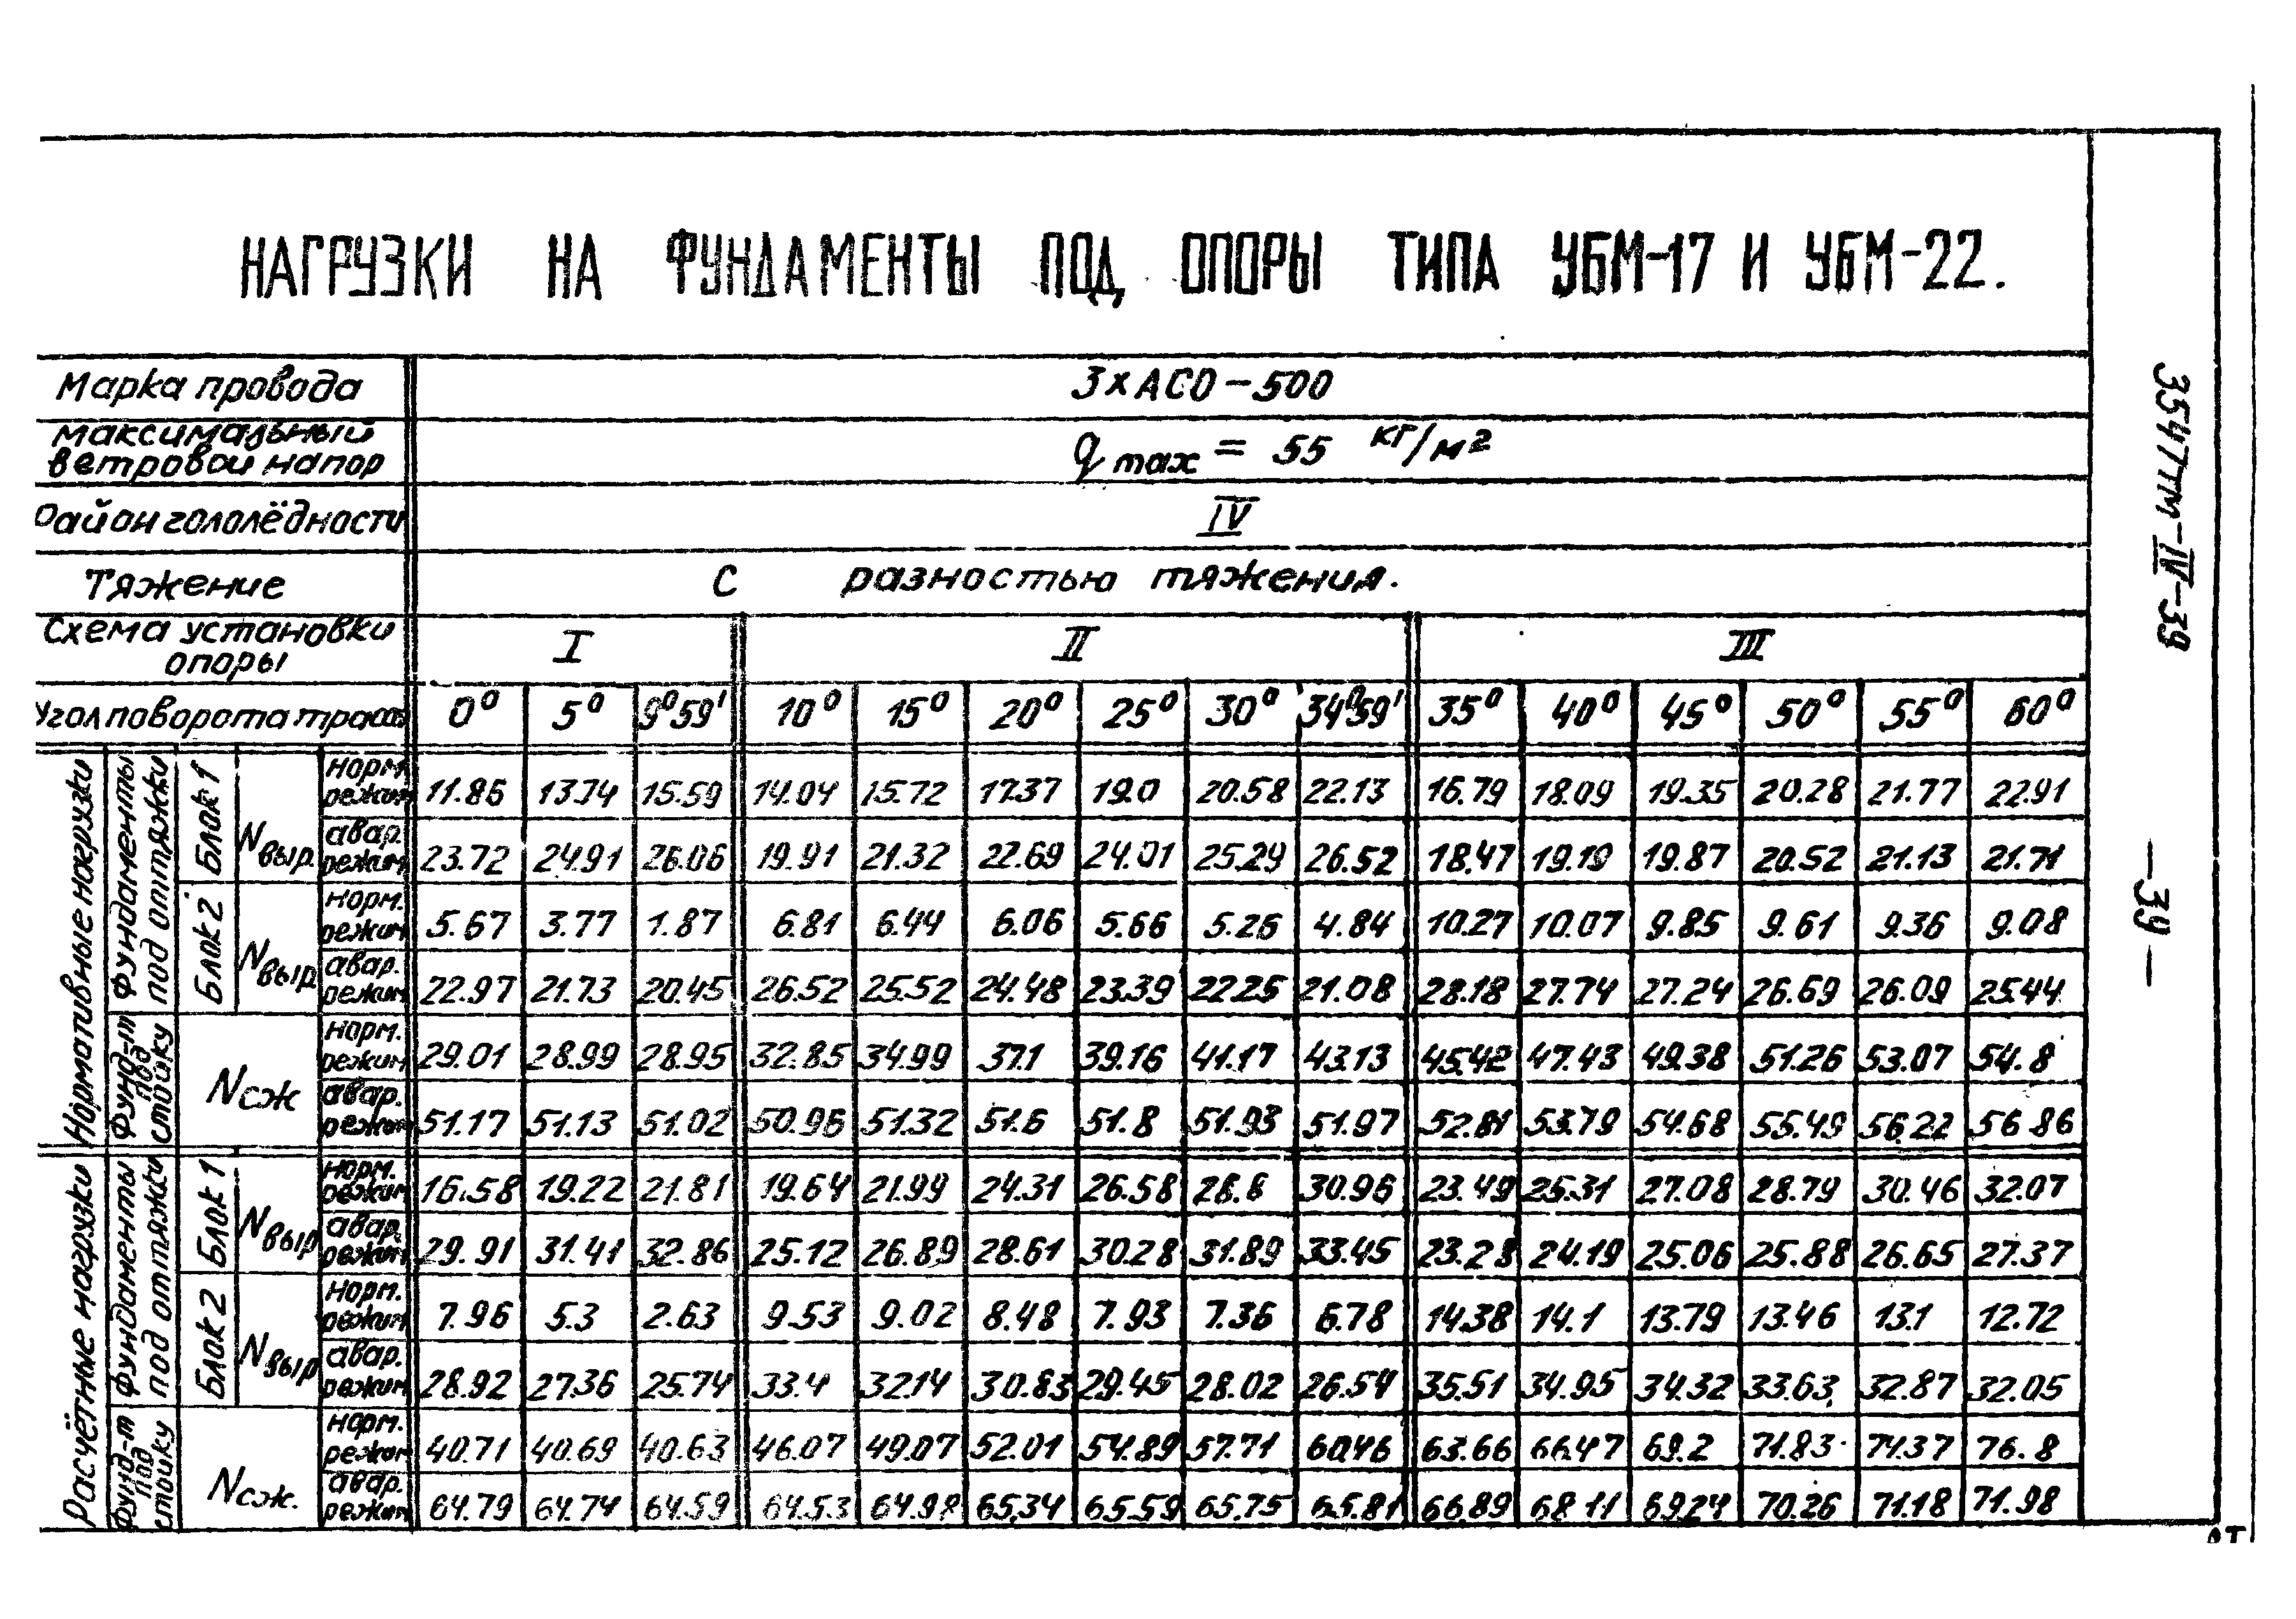 НАГРУЗКИ НА ФУНДАМЕНТЫ ПОД ОПОРЫ ТИПА УБМ-17 И УБМ-22.
Марка провода 3×АСО-500
максимальный
ветровой напор q max = 55 кг/м²
Район гололёдности IV
Тяжение С разностью тяжения.
Схема установки
опоры I II III
Угол поворота трассы 0° 5° 9°59' 10° 15° 20° 25° 30° 34°59' 35° 40° 45° 50° 55° 60°
Нормативные нагрузки
Фундаменты
под оттяжки
Блок 1
Nвыр.
норм.
режим 11.86 13.74 15.59 14.04 15.72 17.37 19.0 20.58 22.13 16.79 18.09 19.35 20.28 21.77 22.91
авар.
режим 23.72 24.91 26.06 19.91 21.32 22.69 24.01 25.29 26.52 18.47 19.19 19.87 20.52 21.13 21.71
Блок 2
Nвыр
норм.
режим 5.67 3.77 1.87 6.81 6.44 6.06 5.66 5.26 4.84 10.27 10.07 9.85 9.61 9.36 9.08
авар.
режим 22.97 21.73 20.45 26.52 25.52 24.48 23.39 22.25 21.08 28.18 27.74 27.24 26.69 26.09 25.44
Фунд-т
под
стойку
Nсж
норм.
режим 29.01 28.99 28.95 32.85 34.99 37.1 39.16 41.17 43.13 45.42 47.43 49.38 51.26 53.07 54.8
авар.
режим 51.17 51.13 51.02 50.96 51.32 51.6 51.8 51.93 51.97 52.81 53.79 54.68 55.49 56.22 56.86
Расчётные нагрузки
Фундаменты
под оттяжки
Блок 1
Nвыр
норм.
режим 16.58 19.22 21.81 19.64 21.99 24.31 26.58 28.8 30.96 23.49 25.31 27.08 28.79 30.46 32.07
авар.
режим 29.91 31.41 32.86 25.12 26.89 28.61 30.28 31.89 33.45 23.28 24.19 25.06 25.88 26.65 27.37
Блок 2
Nвыр
норм.
режим 7.96 5.3 2.63 9.53 9.02 8.48 7.93 7.36 6.78 14.38 14.1 13.79 13.46 13.1 12.72
авар.
режим 28.92 27.36 25.74 33.4 32.14 30.83 29.45 28.02 26.54 35.51 34.95 34.32 33.63 32.87 32.05
Фунд-т
под
стойку
Nсж.
норм.
режим 40.71 40.69 40.63 46.07 49.07 52.01 54.89 57.71 60.46 63.66 66.47 69.2 71.83 74.37 76.8
авар.
режим 64.79 64.74 64.59 64.53 64.98 65,34 65.59 65.75 65.81 66.89 68.11 69.24 70.26 71.18 71.98
3547тм-IV-39
— 39 —